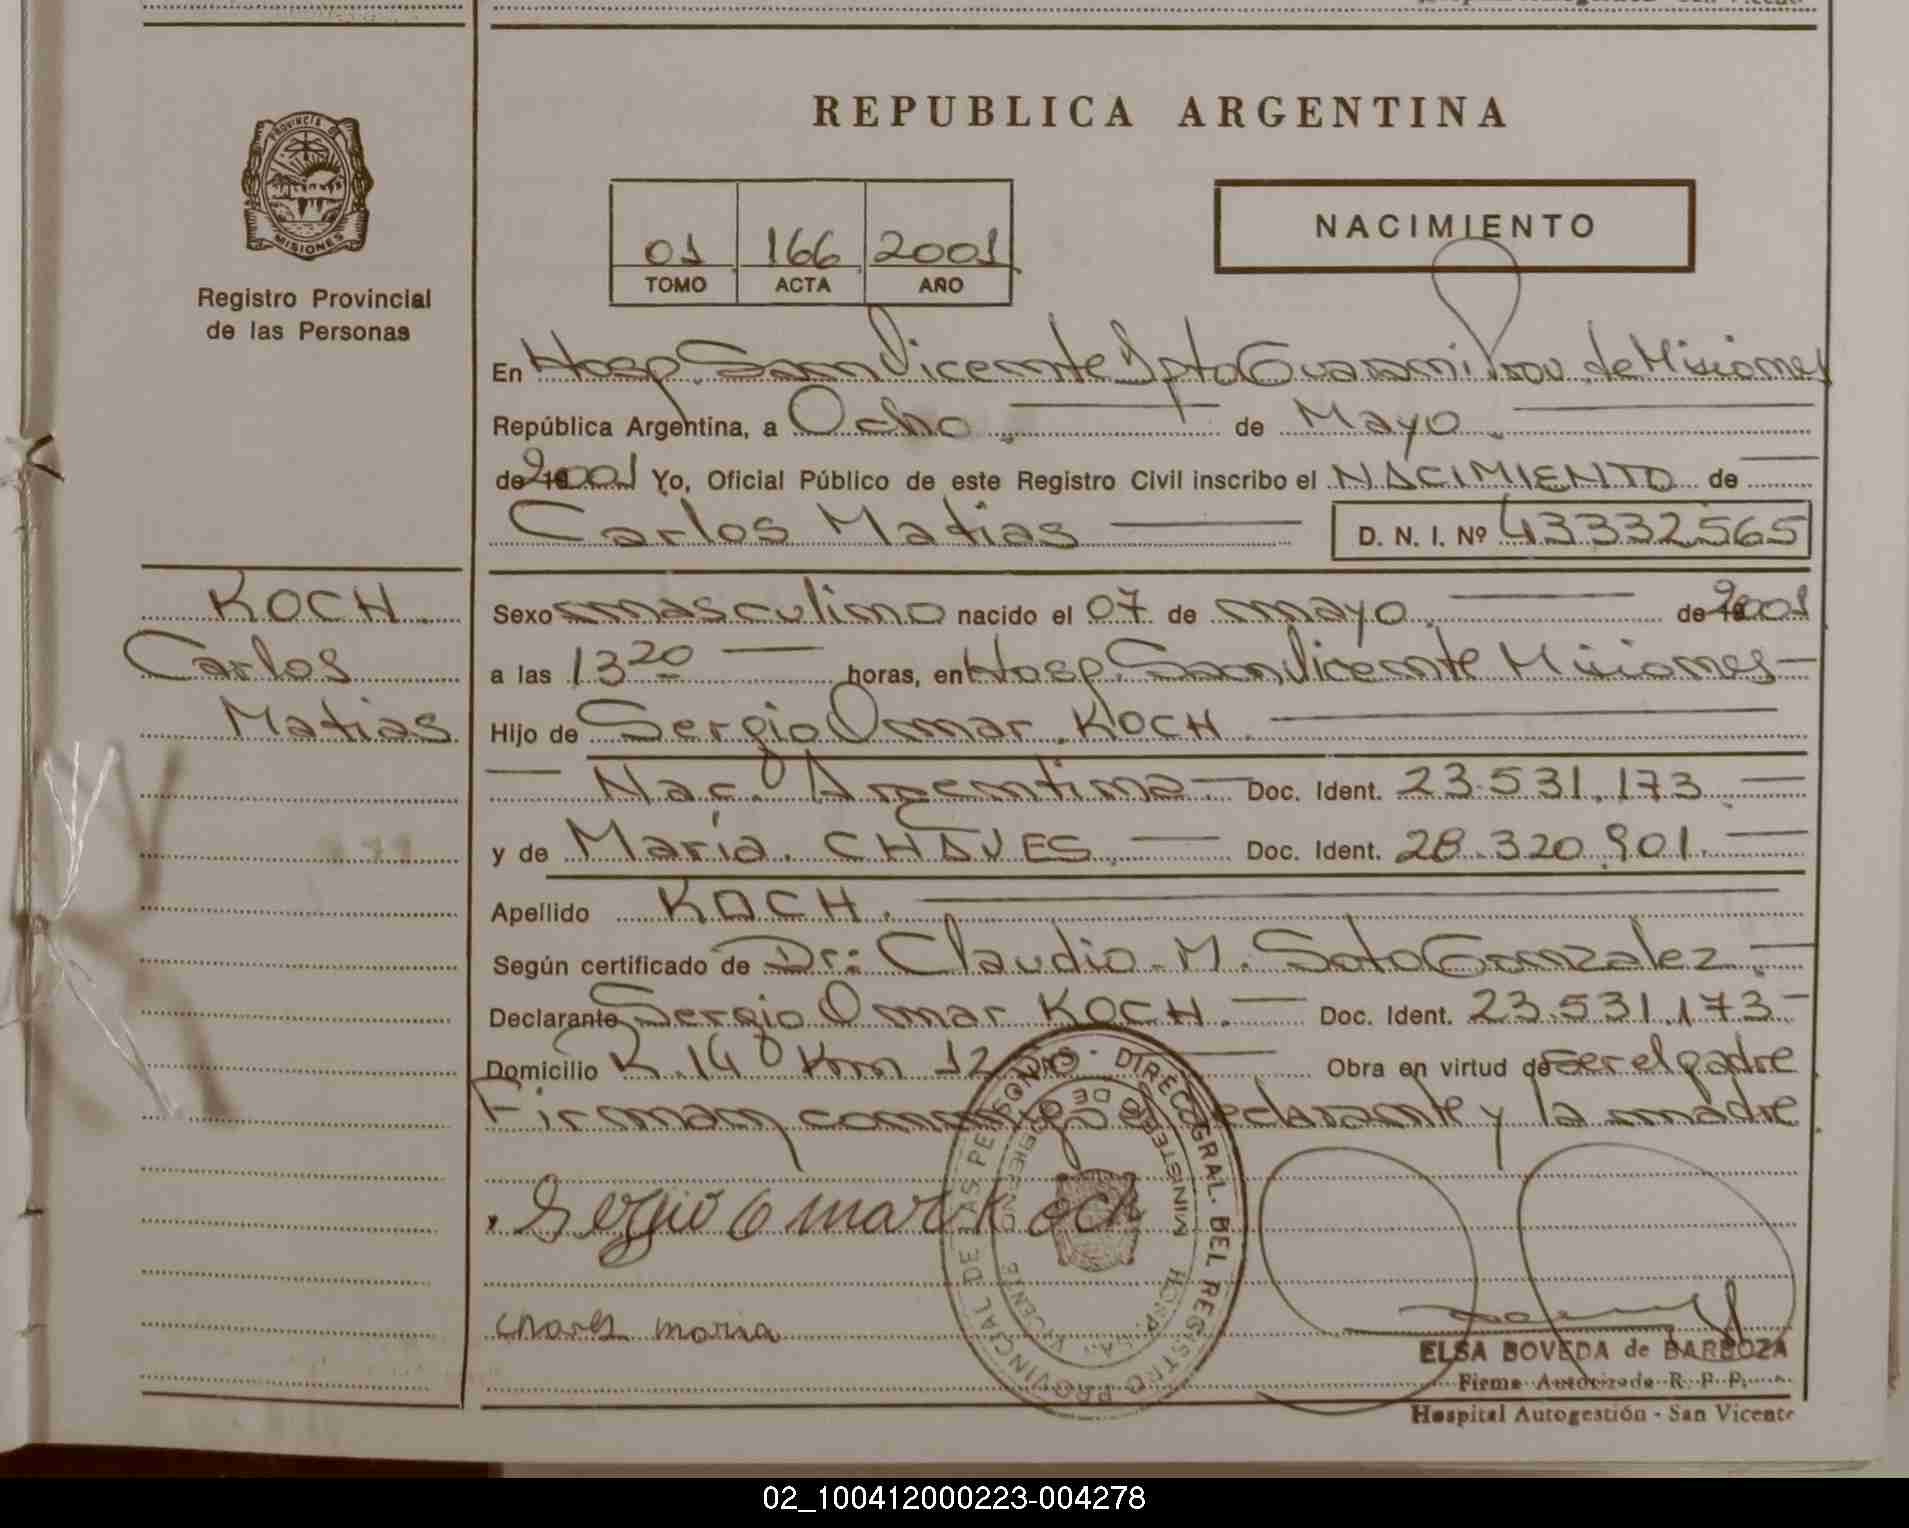 PROVINCIA DE
MISIONES
Registro Provincial
de las Personas
KOCH.
Carlos
Matias
REPUBLICA ARGENTINA
01 166 2001
TOMO ACTA AÑO
NACIMIENTO
En Hosp. San Vicente Dpto Guarani Prov. de Misiones
República Argentina, a Ocho. de Mayo.
de 2001 Yo, Oficial Público de este Registro Civil inscribo el NACIMIENTO de
Carlos Matias D. N. I. Nº 43332565
Sexo masculino nacido el 07 de mayo. de 2001
a las 13 20 horas, en Hosp. San Vicente Misiones
Hijo de Sergio Omar KOCH.
Nac. Argentina Doc. Ident. 23.531.173
y de María CHAVES. Doc. Ident. 28.320.901.
Apellido KOCH.
Según certificado de Dr: Claudio M. Soto Gonzalez.
Declarante Sergio Omar KOCH. Doc. Ident. 23.531.173
Domicilio R. 14 Km Obra en virtud de ser el padre
Firman conmigo el declarante y la madre
Sergio Omar Koch
chaves maria
DIREC. GRAL. DEL REGISTRO PROVINCIAL DE LAS PERSONAS
MINISTERIO DE GOBIERNO
HOSP. SAN VICENTE
ELSA BOVEDA de BARBOZA
Firma Autorizada R. P. P.
Hospital Autogestión - San Vicente
02_100412000223-004278